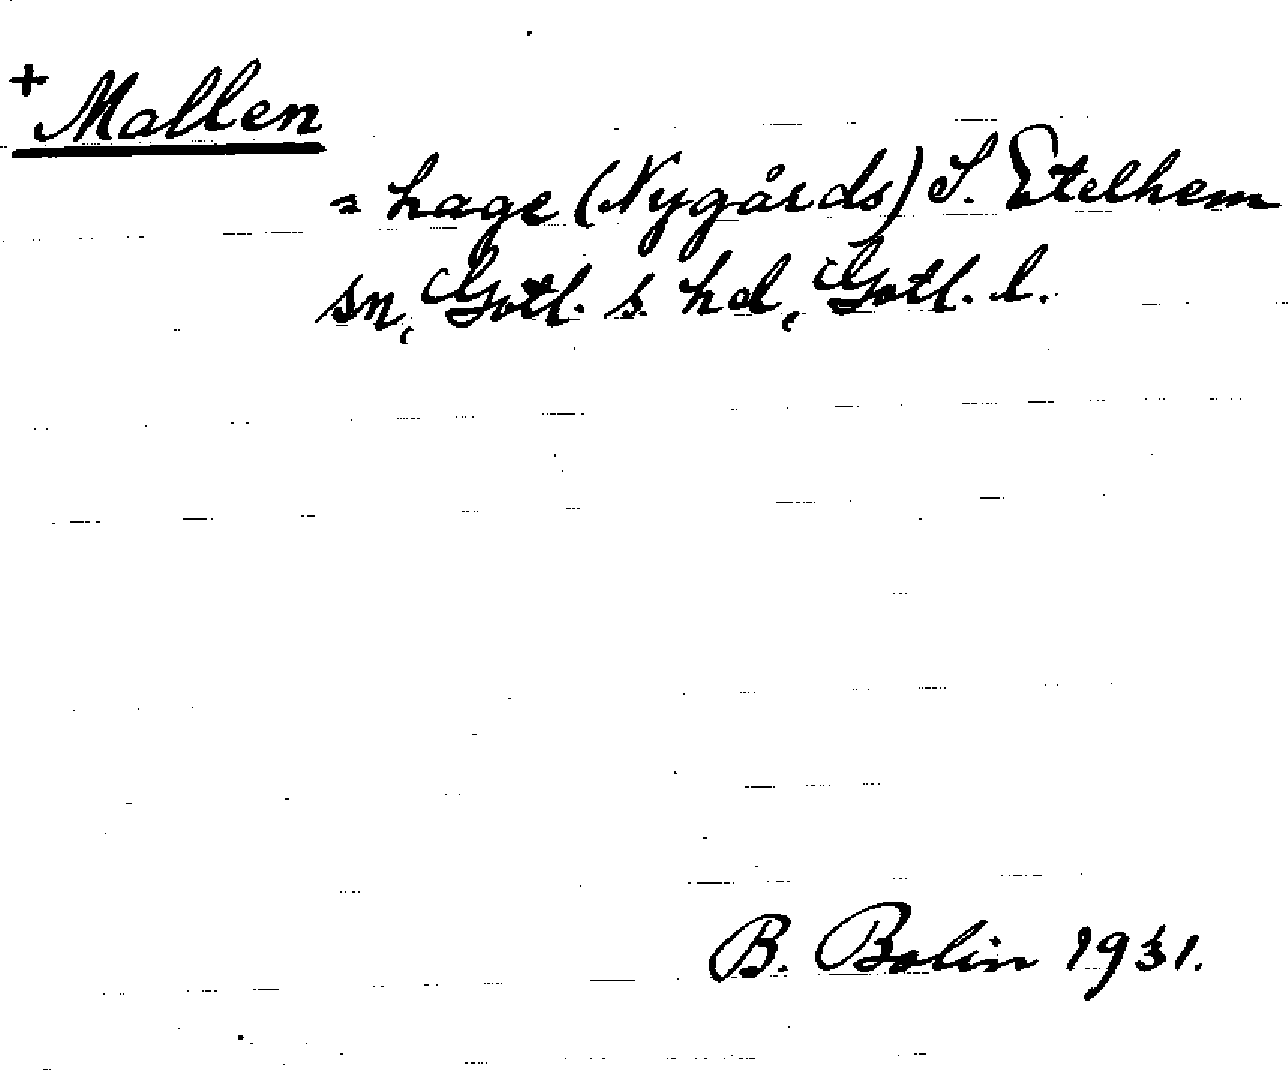 + Mallen
= hage (Nygårds) S. Etelhem
sn, Gotl. s. hd, Gotl. l.
B. Bolin 1931.